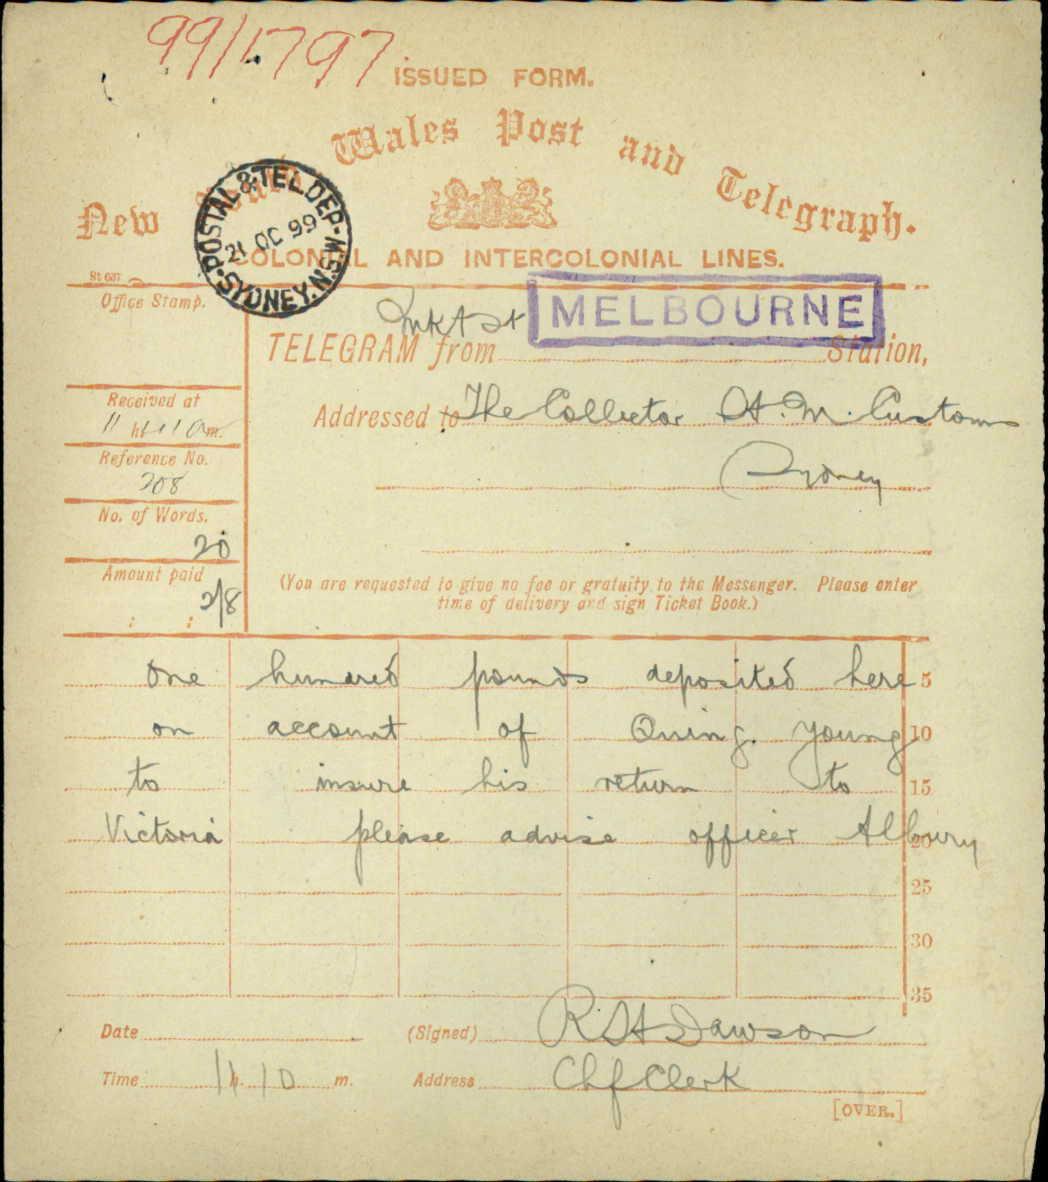 99/1797
ISSUED FORM.
New South Wales Post and Telegraph.
S.POSTAL & TEL.DEP.M'S.N.
21 OC 99
SYDNEY.N.S.W.
COLONIAL AND INTERCOLONIAL LINES.
Office Stamp.
TELEGRAM from MELBOURNE Station,
Received at
11 h 110 m.
Addressed to The Collector H. M. Customs
Reference No.
208
Sydney
No. of Words.
20
Amount paid
2/8
(You are requested to give no fee or gratuity to the Messenger. Please enter
time of delivery and sign Ticket Book.)
One hundred pounds deposited here 5
on account of Quing. Young 10
to insure his return to 15
Victoria please advise officer Albury 20
25
30
35
Date (Signed) R H Dawson
Time 11 h. 10 m. Address Chf Clerk
[OVER.]